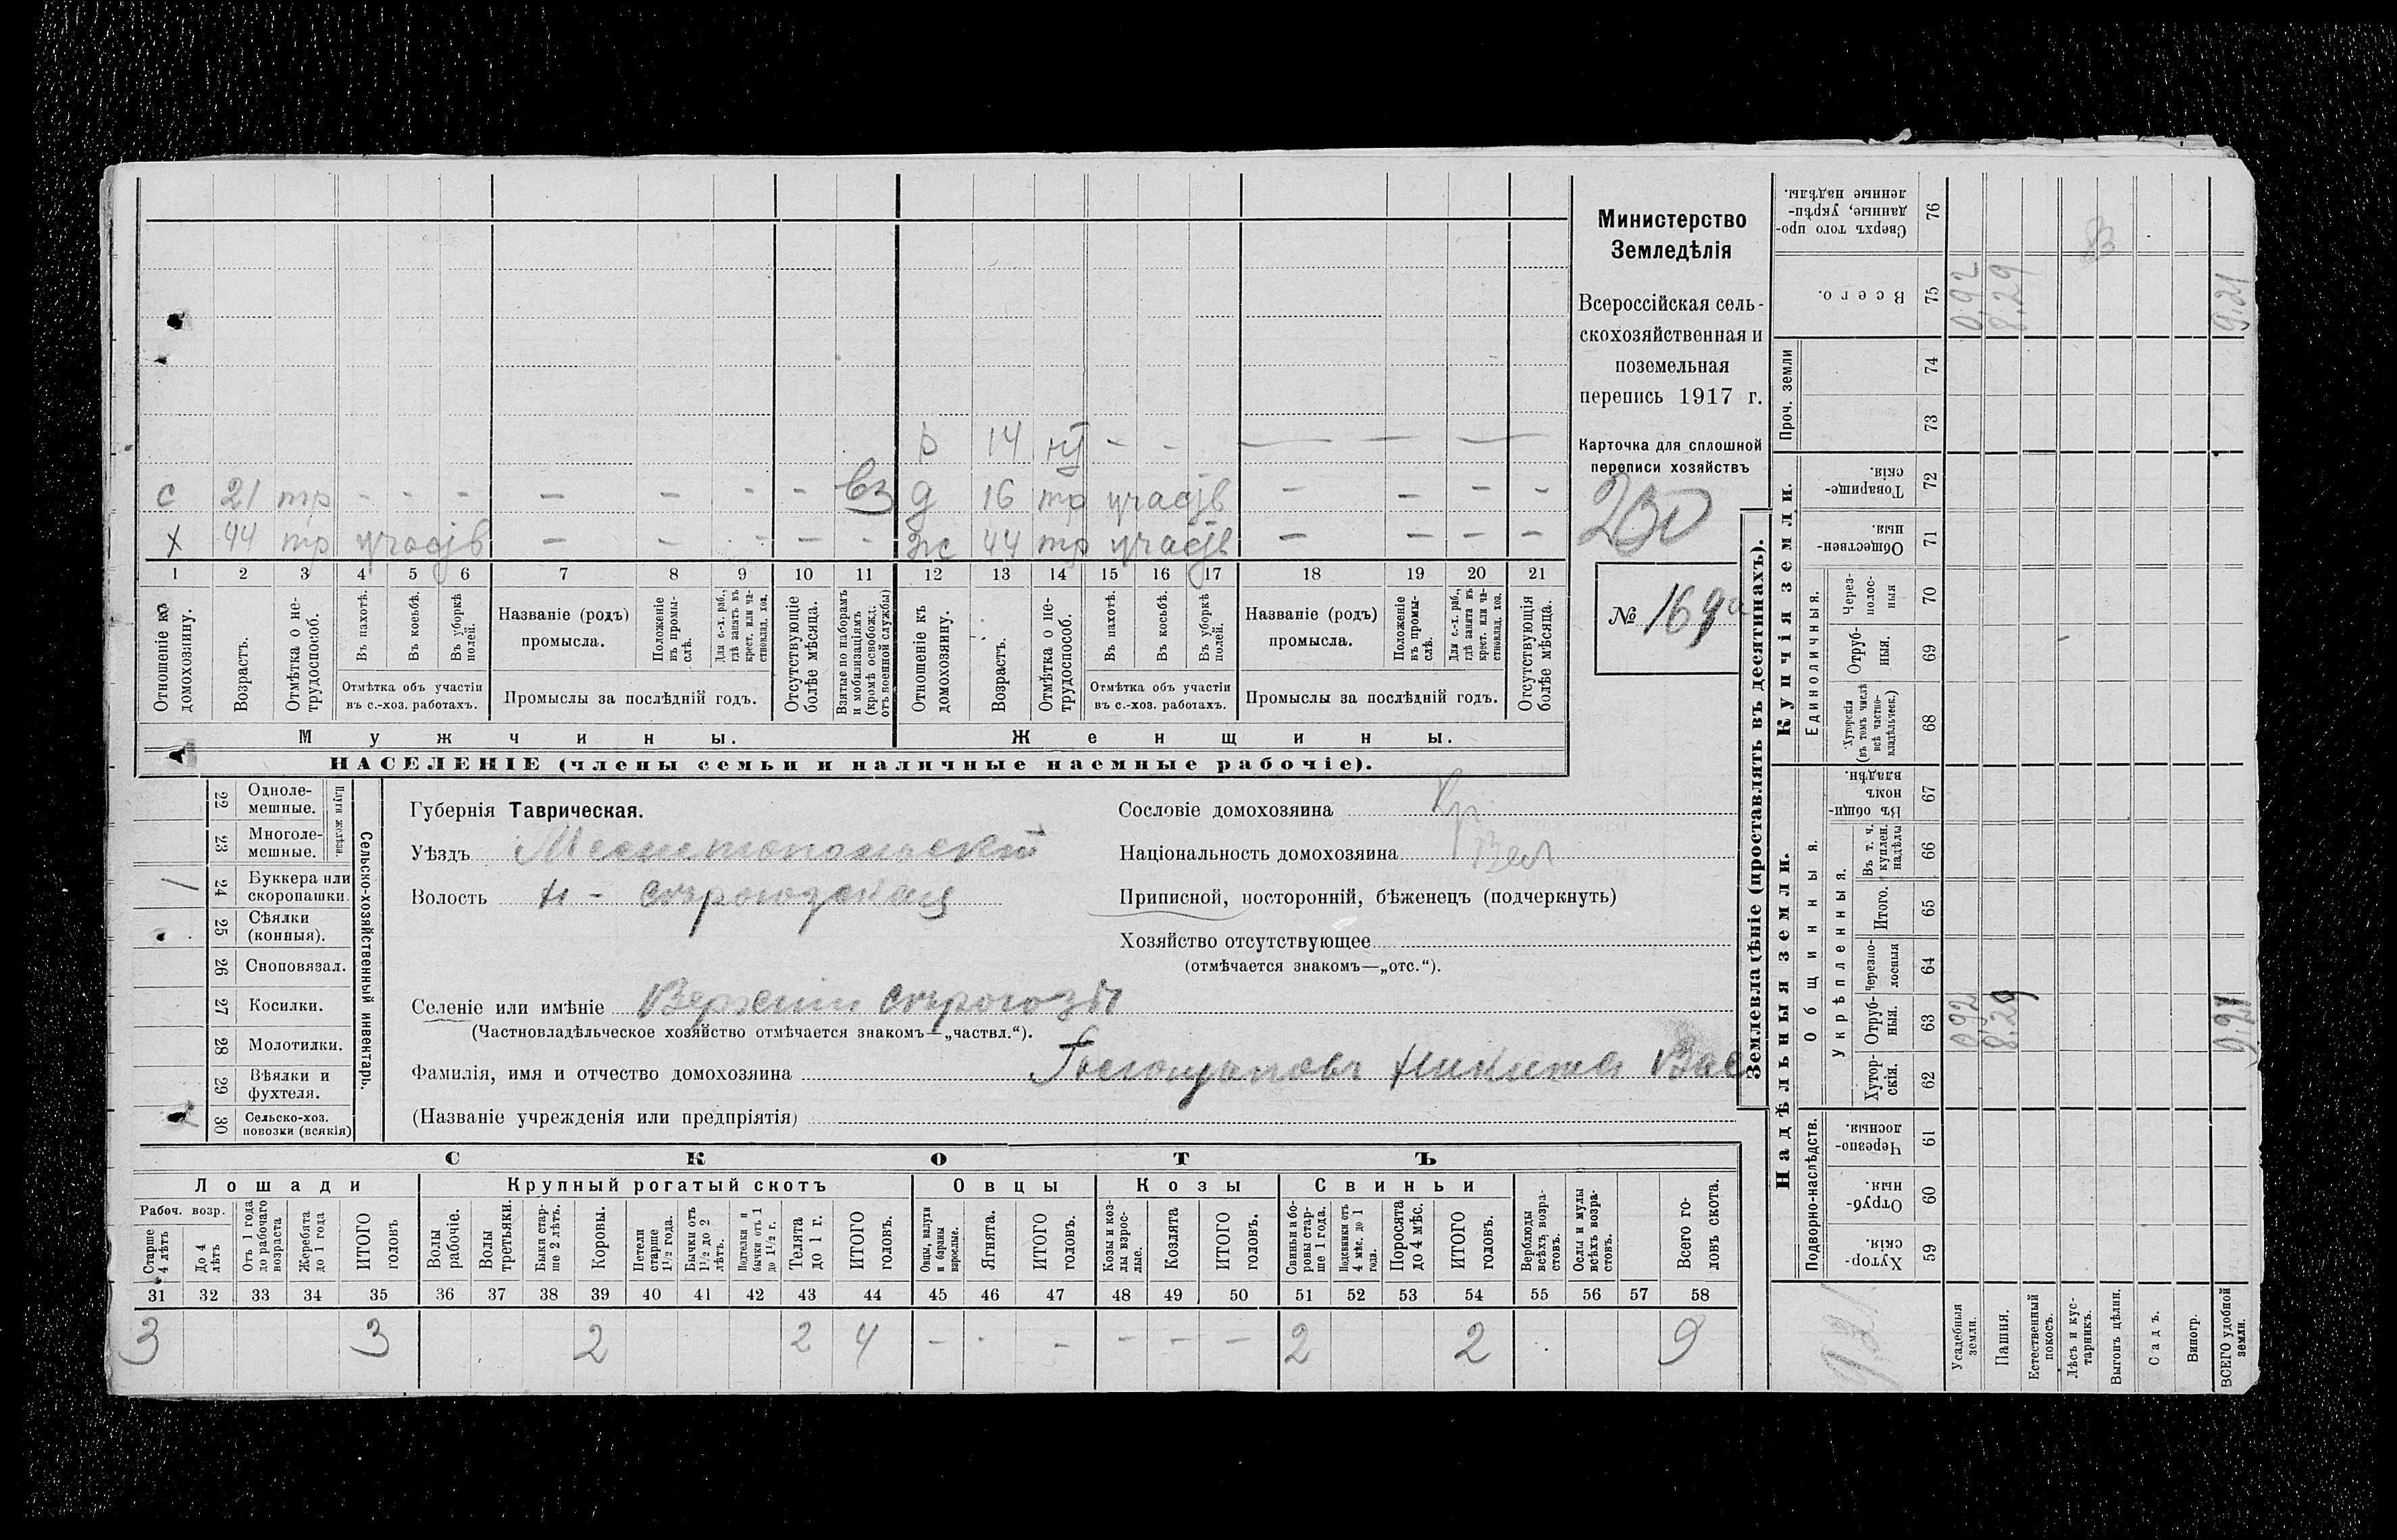 с 21 тр - - - - - - - вз
х 44 тр участв - - - - -
р 14 - - - - -
д 16 тр участв - - - -
ж 44 тр участв - - - -
1 2 3 4 5 6 7 8 9 10 11 12 13 14 15 16 17 18 19 20 21
Отношеніе къ домохозяину.
Возрастъ.
Отмѣтка о не-
трудоспособ.
Въ пахотѣ.
Въ косьбѣ.
Въ уборкѣ
полей.
Отмѣтка объ участіи
въ с.-хоз. работахъ.
Названіе (родъ)
промысла.
Положеніе
въ промы-
слѣ.
Для с.-х. раб.,
гдѣ занятъ въ
крест. или ча-
стновлад. хоз.
Промыслы за послѣдній годъ.
Отсутствующіе
болѣе мѣсяца.
Взятые по наборамъ
и мобилизаціямъ
(кромѣ освобожд.
отъ военной службы)
Отношеніе къ
домохозяину.
Возрастъ.
Отмѣтка о не-
трудоспособ.
Въ пахотѣ.
Въ косьбѣ.
Въ уборкѣ
полей.
Отмѣтка объ участіи
въ с.-хоз. работахъ.
Названіе (родъ)
промысла.
Положеніе
въ промы-
слѣ.
Для с.-х. раб.,
гдѣ занята въ
крест. или ча-
стновлад. хоз.
Промыслы за послѣдній годъ.
Отсутствующія
болѣе мѣсяца.
Мужчины.
Женщины.
НАСЕЛЕНІЕ (члены семьи и наличные наемные рабочіе).
Министерство
Земледѣлія
Всероссійская сель-
скохозяйственная и
поземельная
перепись 1917 г.
Карточка для сплошной
переписи хозяйствъ
230
№ 169а
22 Одноле-
мешные.
23 Многоле-
мешные.
Плуги желѣзн.
24 Буккера или
скоропашки.
25 Сѣялки
(конныя).
26 Сноповязал.
27 Косилки.
28 Молотилки.
29 Вѣялки и
фухтеля.
30 Сельско-хоз.
повозки (всякія)
Сельско-хозяйственный инвентарь.
Губернія Таврическая.
Уѣздъ Мелитопольскій
Волость Н-Сѣрогозская
Селеніе или имѣніе Верхніи Сѣрогозы
(Частновладѣльческое хозяйство отмѣчается знакомъ—„частвл.“).
Фамилія, имя и отчество домохозяина Никита Вас
(Названіе учрежденія или предпріятія)
Сословіе домохозяина Кр.
Національность домохозяина Вел
Приписной, посторонній, бѣженецъ (подчеркнуть)
Хозяйство отсутствующее
(отмѣчается знакомъ—„отс.“).
СКОТЪ
Лошади
Рабоч. возр.
Старше
4 лѣтъ
До 4
лѣтъ
Отъ 1 года
до рабочаго
возраста
Жеребята
до 1 года
ИТОГО
головъ
Крупный рогатый скотъ
Волы
рабочіе.
Волы
третьяки.
Быки стар-
ше 2 лѣтъ.
Коровы.
Нетели
старше
1½ года.
Бычки отъ
1½ до 2
лѣтъ.
Подтелки и
бычки отъ 1
до 1½ г.
Телята
до 1 г.
ИТОГО
головъ.
Овцы
Овцы, валухи
и бараны
взрослые.
Ягнята.
ИТОГО
головъ.
Козы
Козы и коз-
лы взрос-
лые.
Козлята
ИТОГО
головъ.
Свиньи
Свиньи и бо-
ровы стар-
ше 1 года.
Подсвинки отъ
4 мѣс. до 1
года.
Поросята
до 4 мѣс.
ИТОГО
головъ.
Верблюды
всѣхъ возра-
стовъ.
Ослы и мулы
всѣхъ возра-
стовъ.
Всего го-
ловъ скота.
31 32 33 34 35 36 37 38 39 40 41 42 43 44 45 46 47 48 49 50 51 52 53 54 55 56 57 58
3 3 2 2 4 - - - - - - 2 2 9
Землевладѣніе (проставлять въ десятинахъ).
Надѣльныя земли.
Подворно-наслѣдств.
Хутор-
скія. 59
Отруб-
ныя. 60
Черезпо-
лосныя. 61
Общинныя.
Укрѣпленныя.
Хутор-
скія. 62
Отруб-
ныя. 63
Черезпо-
лосныя 64
Итого. 65
Въ т. ч.
куплен.
надѣлы 66
Въ общин-
номъ
владѣн. 67
Купчія земли.
Единоличныя.
Хуторскія
(въ томъ числѣ
всѣ частно-
владѣльческ.) 68
Отруб-
ныя. 69
Через-
полос-
ныя 70
Обществен-
ныя. 71
Товарище-
скія. 72
Проч. земли
73 74
Всего. 75
Сверхъ того про-
данные, укрѣп-
ленные надѣлы. 76
Усадебныя
земли. 0,92 0,92
Пашня. 8.29 8.29
Естественный
покосъ.
Лѣсъ и кус-
тарникъ.
Выгонъ цѣлин.
Садъ.
Виногр.
ВСЕГО удобной
земли. 9.21 9.21